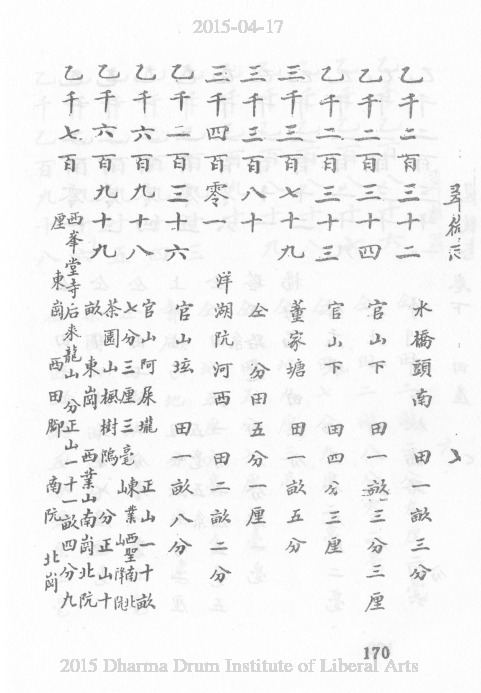 2015-04-17
翠微志
乙千二百三十二 水橋頭南 田一畝三分
乙千二百三十四 官山下 田一畝三分三厘
乙千二百三十三 官山下 田四分三厘
三千三百七十九 董家塘 田一畝五分
三千三百八十 仝 分田五分一厘
三千四百零一 洋湖阮河西 田二畝二分
乙千二百三十六 官山坛 田一畝八分
乙千六百九十八 官山阿屎壠 正山一十畝
七分三厘三毫 東業山西聖南北
乙千六百九十九 茶園山楓樹隖 分正山十
畝 東崗 西業山南崗北阮
乙千七百 西峯堂寺后來龍山分正山一十一畝四分九
厘 東崗 西田脚 南阮 北崗
170
2015 Dharma Drum Institute of Liberal Arts